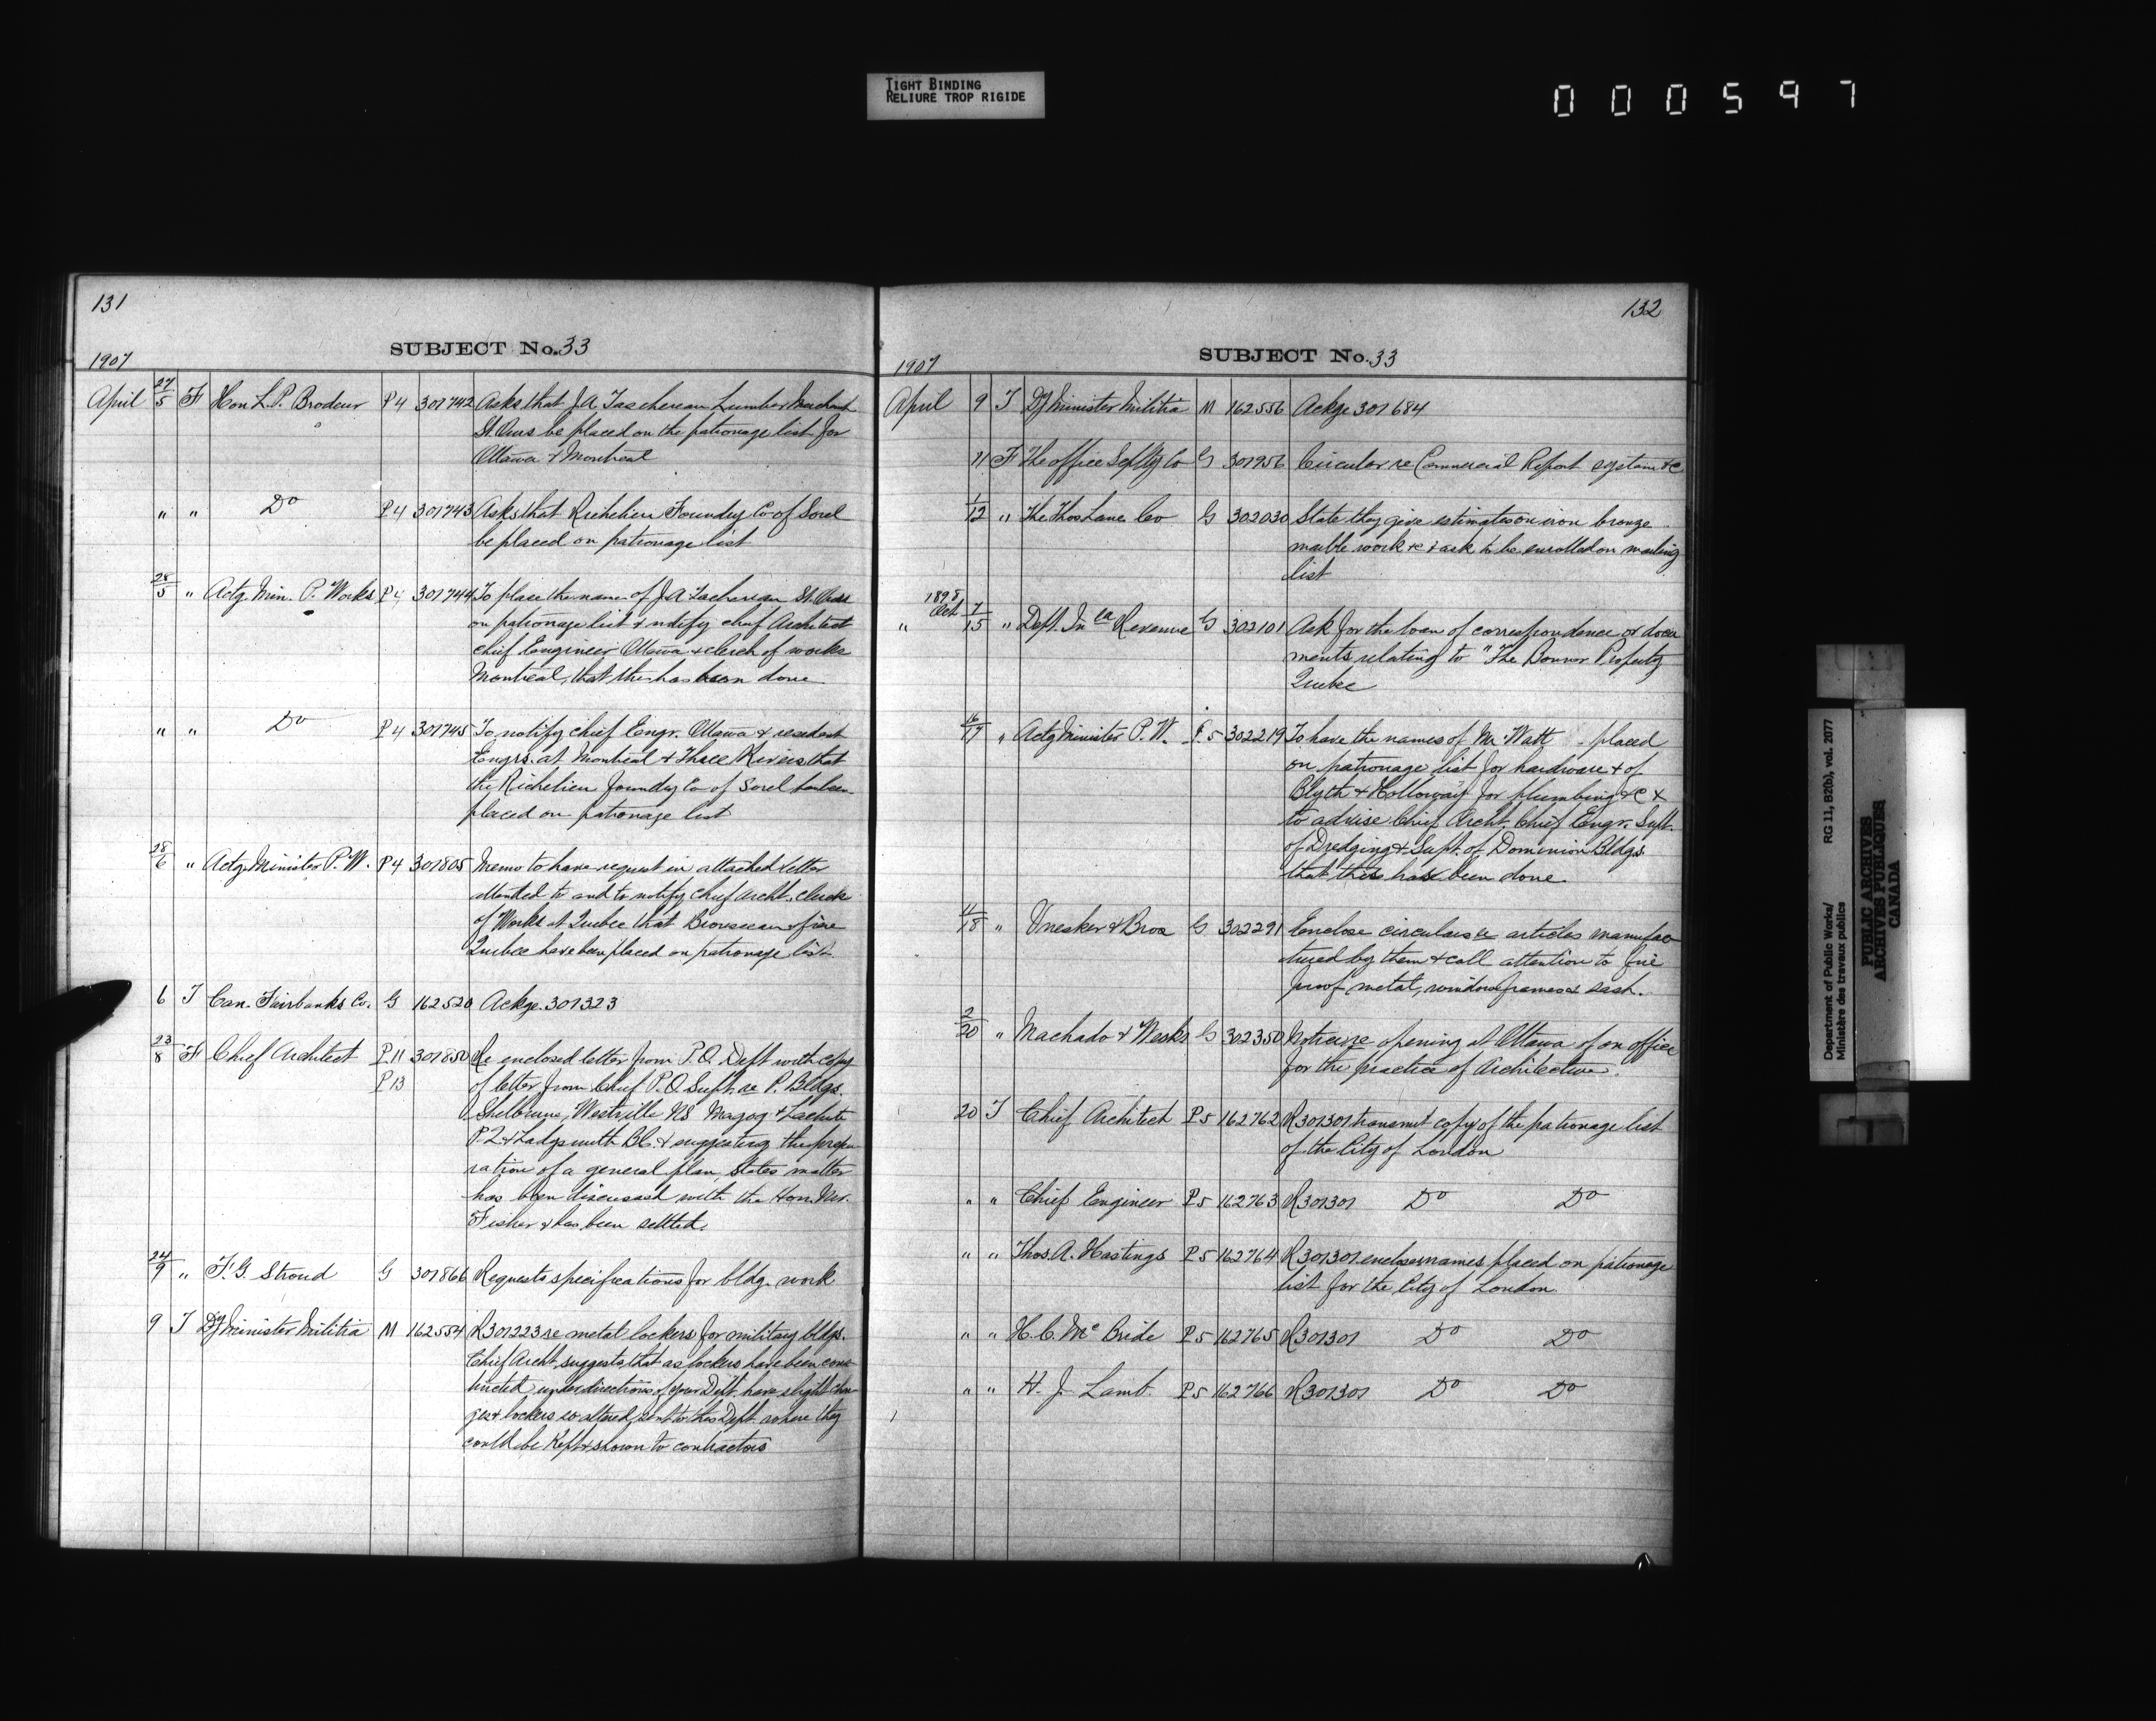 TIGHT BINDING
RELIURE TROP RIGIDE
000597
131
SUBJECT No. 33
1907
April 27/5 F Hon L. P. Brodeur P4 301742 Asks that J. A. Taschereau Lumber Merchant
St. Ours be placed on the patronage list for
Ottawa & Montreal
" " Do P4 301743 Asks that Richelieu Foundry Co of Sorel
be placed on patronage list
28/5 " Actg. Min. P. Works P4 301744 To place the name of J. A. Tachereau St. Ours
on patronage list & notify chief Architect
chief Engineer Ottawa & clerk of works
Montreal, that this has been done
" " Do P4 301745 To notify chief Engr. Ottawa & resident
Engrs. at Montreal & Three Rivers that
the Richelieu foundry Co of Sorel has been
placed on patronage list
28/6 " Actg Minister P. W. P4 301805 Memo to have request in attached letter
attended to and to notify chief archt. clerk
of Works at Quebec that Brousseau & frère
Quebec have been placed on patronage list
6 T Can. Fairbanks Co. G 162520 Ackge. 301323
23/8 F Chief Architect P.11 301850 Re enclosed letter from P.O. Dept with copy
P13 of letter from Chief P.O. Supt. re P. Bldgs.
Shelburne, Westville NS Magog & Lachute
P.Q. & Ladysmith BC. & suggesting the prepa
ration of a general plan, States matter
has been discussed with the Hon. Mr.
Fisher & has been settled.
24/9 " F. G. Stroud G 301866 Requests specifications for bldg. work
9 T Dy Minister Militia M 162554 R301223 re metal lockers for military bldgs.
Chief Archt. suggests that as lockers have been cons
tructed under directions of your Dept. have slight chan
ges & lockers so altered, sent to this Dept. where they
could be kept & shown to contractors
132
SUBJECT No. 33
1907
April 9 T Dy Minister Militia M 162556 Ackge 301684
11 F The office Co G 301956 Circular re Commercial Report system &c
1/12 " The Thos Lane Co G 302030 State they give estimates on iron bronze
marble work &c & ask to be enrolled on mailing
list
1895
" Oct 7/15 " Dept. In ca Revenue G 302101 Ask for the loan of correspondence or docu
ments relating to "The Bonner Property
Quebec
16/17 " Actg Minister P. W. P.5 302219 To have the names of Mr Watt placed
on patronage list for hardware & of
Blyth & Holloway for plumbing &c &
to advise Chief Archt. Chief Engr. Supt.
of Dredging & Supt. of Dominion Bldgs.
that this has been done.
4/18 " & Bros G 302291 Enclose circulars re articles manufac
tured by them & call attention to fire
proof, metal, window frames & sash.
2/20 " Machado & G 302350 Notice re opening at Ottawa of an office
for the practice of Architecture.
20 T Chief Architect P5 162762 R301301 transmit copy of the patronage list
of the City of London
" " Chief Engineer P5 162763 R301301 Do Do
" " Thos. A. Hastings P5 162764 R301301 encloses names placed on patronage
list for the City of London.
" " H. C. Mc Bride P5 162765 R301301 Do Do
" " H. J. Lamb. P5 162766 R301301 Do Do
Department of Public Works/
Ministère des travaux publics
RG 11, B2(b), vol. 2077
PUBLIC ARCHIVES
ARCHIVES PUBLIQUES
CANADA